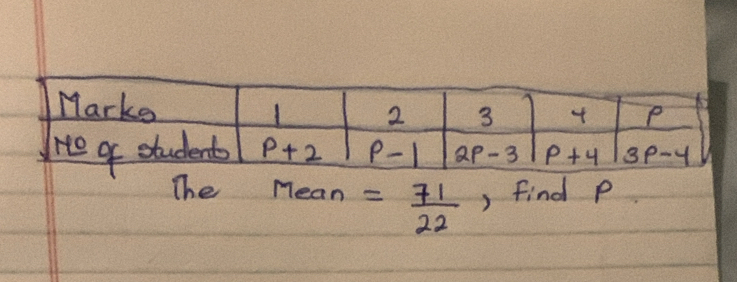 Marks 1 2 3 4 P
No of students P+2 P-1 2P-3 P+4 3P-4
The Mean = 71/22, find P.